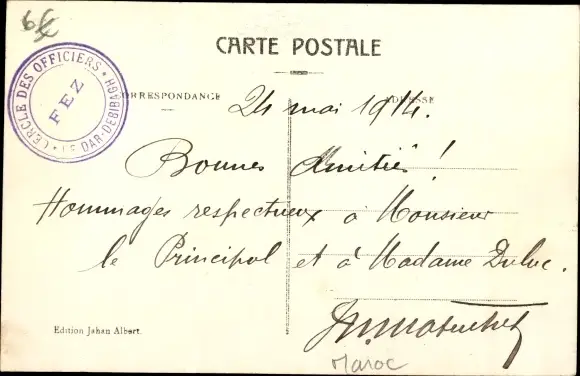 CARTE POSTALE
CERCLE DES OFFICIERS
DAR-DEBIBAGH
FEZ
CORRESPONDANCE
ADRESSE
24 mai 1914.
Bonnes Amitiés!
Hommages respectueux à Monsieur
le Principal et à Madame Duluc.
Edition Jahan Albert.
Maroc